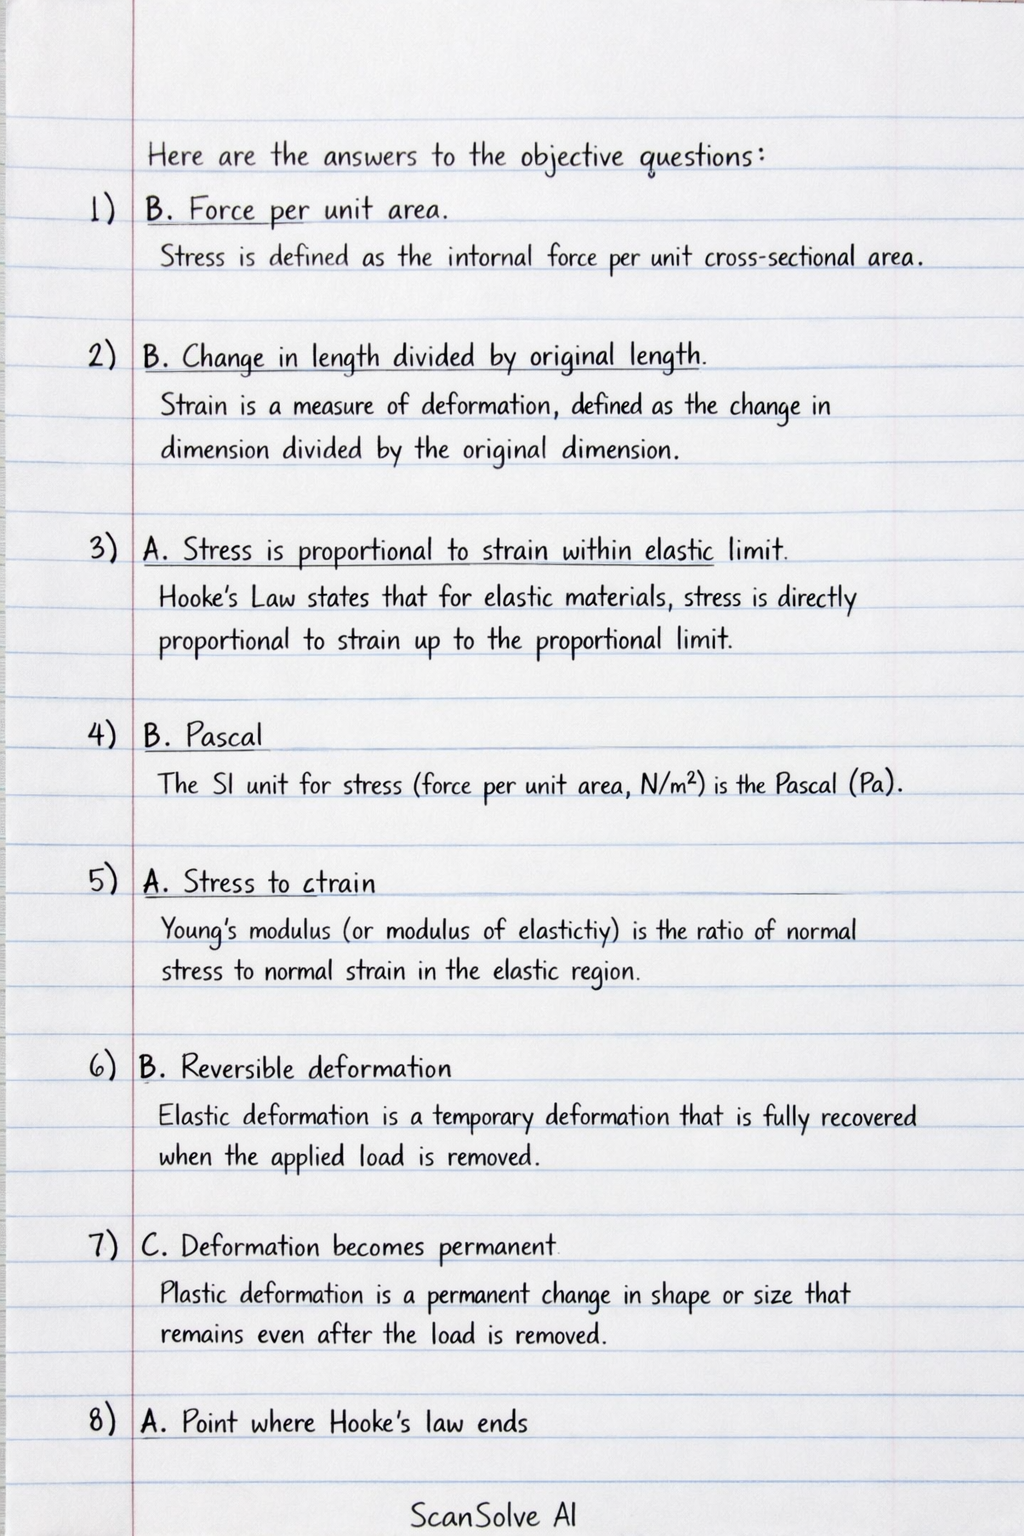 Here are the answers to the objective questions:
1) B. Force per unit area.
Stress is defined as the intornal force per unit cross-sectional area.
2) B. Change in length divided by original length.
Strain is a measure of deformation, defined as the change in
dimension divided by the original dimension.
3) A. Stress is proportional to strain within elastic limit.
Hooke's Law states that for elastic materials, stress is directly
proportional to strain up to the proportional limit.
4) B. Pascal
The SI unit for stress (force per unit area, N/m²) is the Pascal (Pa).
5) A. Stress to ctrain
Young's modulus (or modulus of elastictiy) is the ratio of normal
stress to normal strain in the elastic region.
6) B. Reversible deformation
Elastic deformation is a temporary deformation that is fully recovered
when the applied load is removed.
7) C. Deformation becomes permanent
Plastic deformation is a permanent change in shape or size that
remains even after the load is removed.
8) A. Point where Hooke's law ends
ScanSolve AI